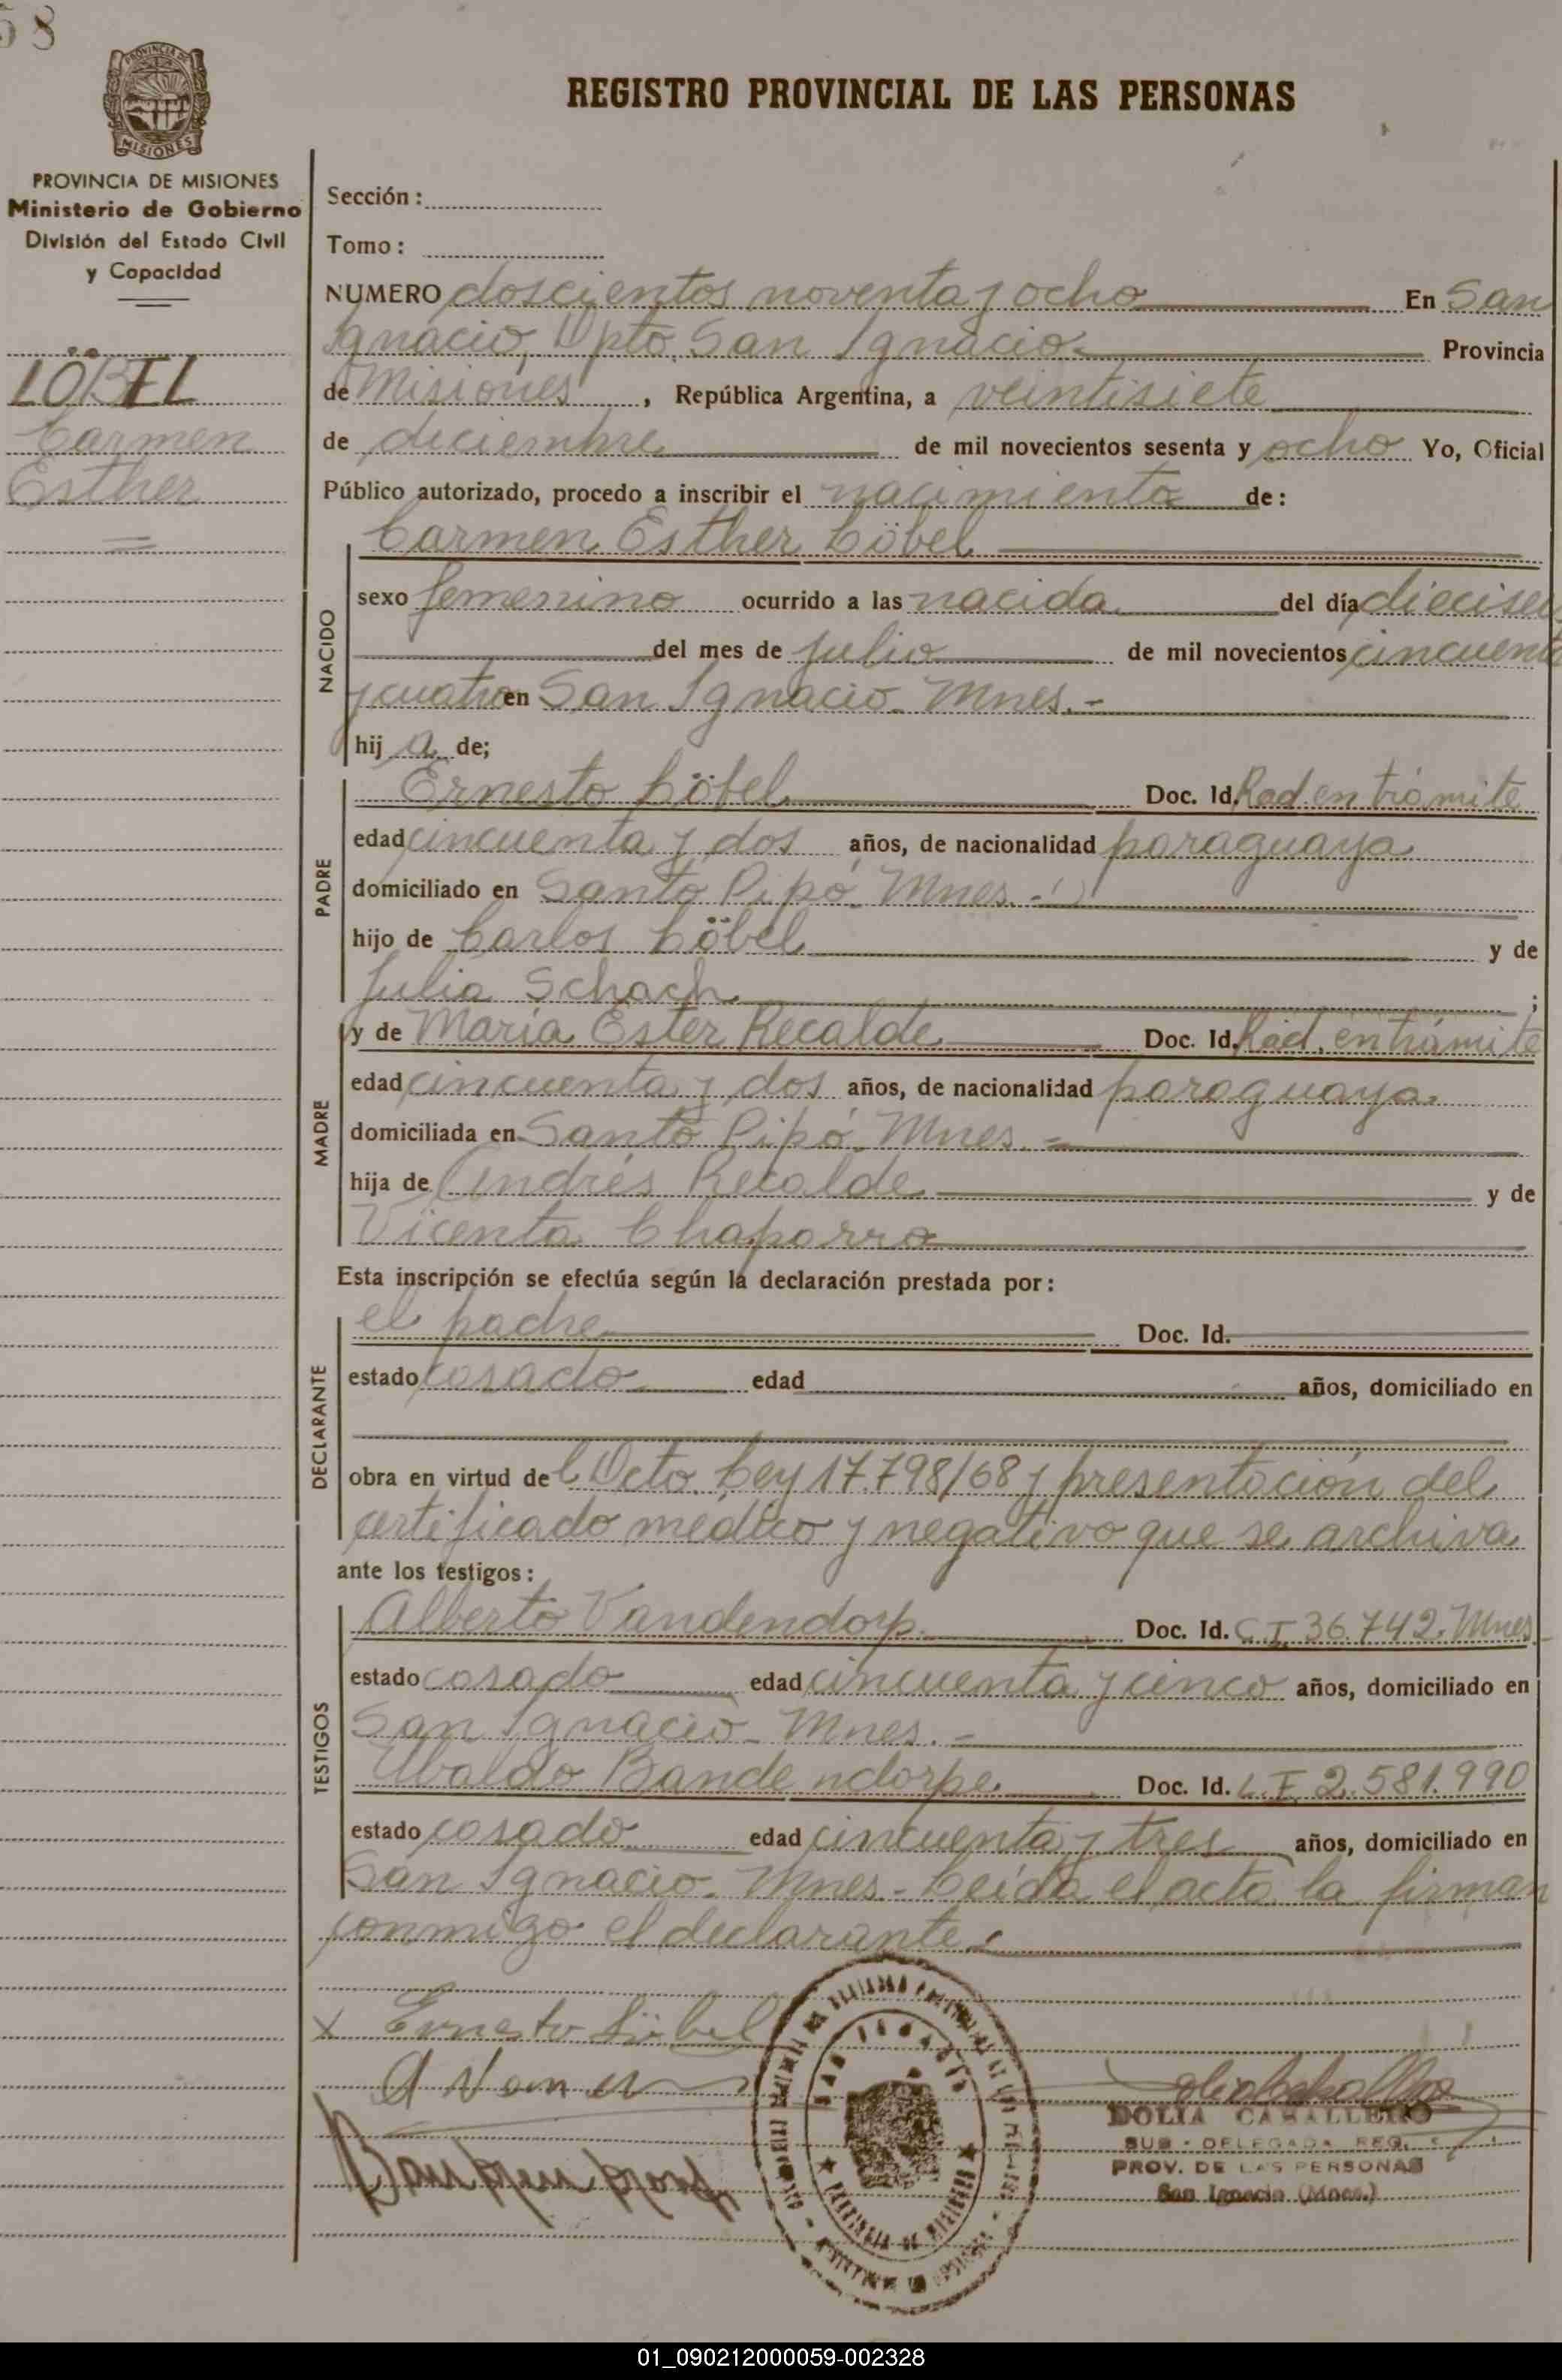 58
PROVINCIA DE
MISIONES
PROVINCIA DE MISIONES
Ministerio de Gobierno
División del Estado Civil
y Capacidad
LÖBEL
Carmen
Esther
REGISTRO PROVINCIAL DE LAS PERSONAS
Sección:
Tomo:
NUMERO doscientos noventa y ocho En San
Ignacio, Dpto. San Ignacio Provincia
de Misiones, República Argentina, a veintisiete
de diciembre de mil novecientos sesenta y ocho Yo, Oficial
Público autorizado, procedo a inscribir el nacimiento de:
Carmen Esther Löbel
NACIDO
sexo femenino ocurrido a las nacida del día dieciseis
del mes de julio de mil novecientos cincuenta
y cuatro en San Ignacio. Mnes.-
hij a de;
PADRE
Ernesto Löbel Doc. Id. Rad. en trámite
edad cincuenta y dos años, de nacionalidad paraguaya
domiciliado en Santo Pipó. Mnes.-
hijo de Carlos Löbel y de
Julia Schach ;
MADRE
y de María Ester Recalde Doc. Id. Rad. en trámite
edad cincuenta y dos años, de nacionalidad paraguaya
domiciliada en Santo Pipó. Mnes.=
hija de Andrés Recalde y de
Vicenta Chaparro
Esta inscripción se efectúa según la declaración prestada por:
DECLARANTE
el padre Doc. Id.
estado casado edad años, domiciliado en
obra en virtud del Dcto. Ley 17.798/68 y presentación del
certificado médico y negativo que se archiva
ante los testigos:
TESTIGOS
Alberto Vandendorp Doc. Id. C.I. 36.742. Mnes
estado casado edad cincuenta y cinco años, domiciliado en
San Ignacio. Mnes.-
Ubaldo Bande ndorpe Doc. Id. L.E. 2.581.990
estado casado edad cincuenta y tres años, domiciliado en
San Ignacio. Mnes.- Leída el acta la firman
conmigo el declarante.
x Ernesto Löbel
SAN IGNACIO
PROVINCIA DE MISIONES
DOLIA CABALLERO
SUB - DELEGADA REG.
PROV. DE LAS PERSONAS
San Ignacio (Mnes.)
01_090212000059-002328